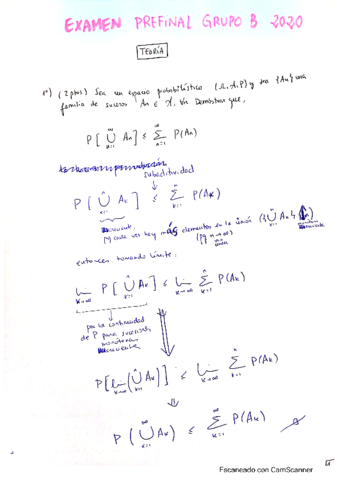 EXAMEN PREFINAL GRUPO B 2020
TEORÍA
1º) (2 ptos) Sea un espacio probabilístico (Ω, A, P) y sea {An} una
familia de sucesos An ∈ A, ∀n. Demostrar que,
P[⋃_{n=1}^{∞} An] ≤ ∑_{n=1}^{∞} P(An)
subaditividad
↓
P[⋃_{k=1}^{n} Ak] ≤ ∑_{k=1}^{n} P(Ak)
cada vez hay más elementos en la unión
entonces tomando límite:
lim_{n→∞} P[⋃_{k=1}^{n} Ak] ≤ lim_{n→∞} ∑_{k=1}^{n} P(Ak)
por la continuidad
de P para sucesiones
monótonas
P[lim_{n→∞} (⋃_{k=1}^{n} Ak)] ≤ lim_{n→∞} ∑_{k=1}^{n} P(Ak)
P(⋃_{k=1}^{∞} Ak) ≤ ∑_{k=1}^{∞} P(Ak)
Escaneado con CamScanner